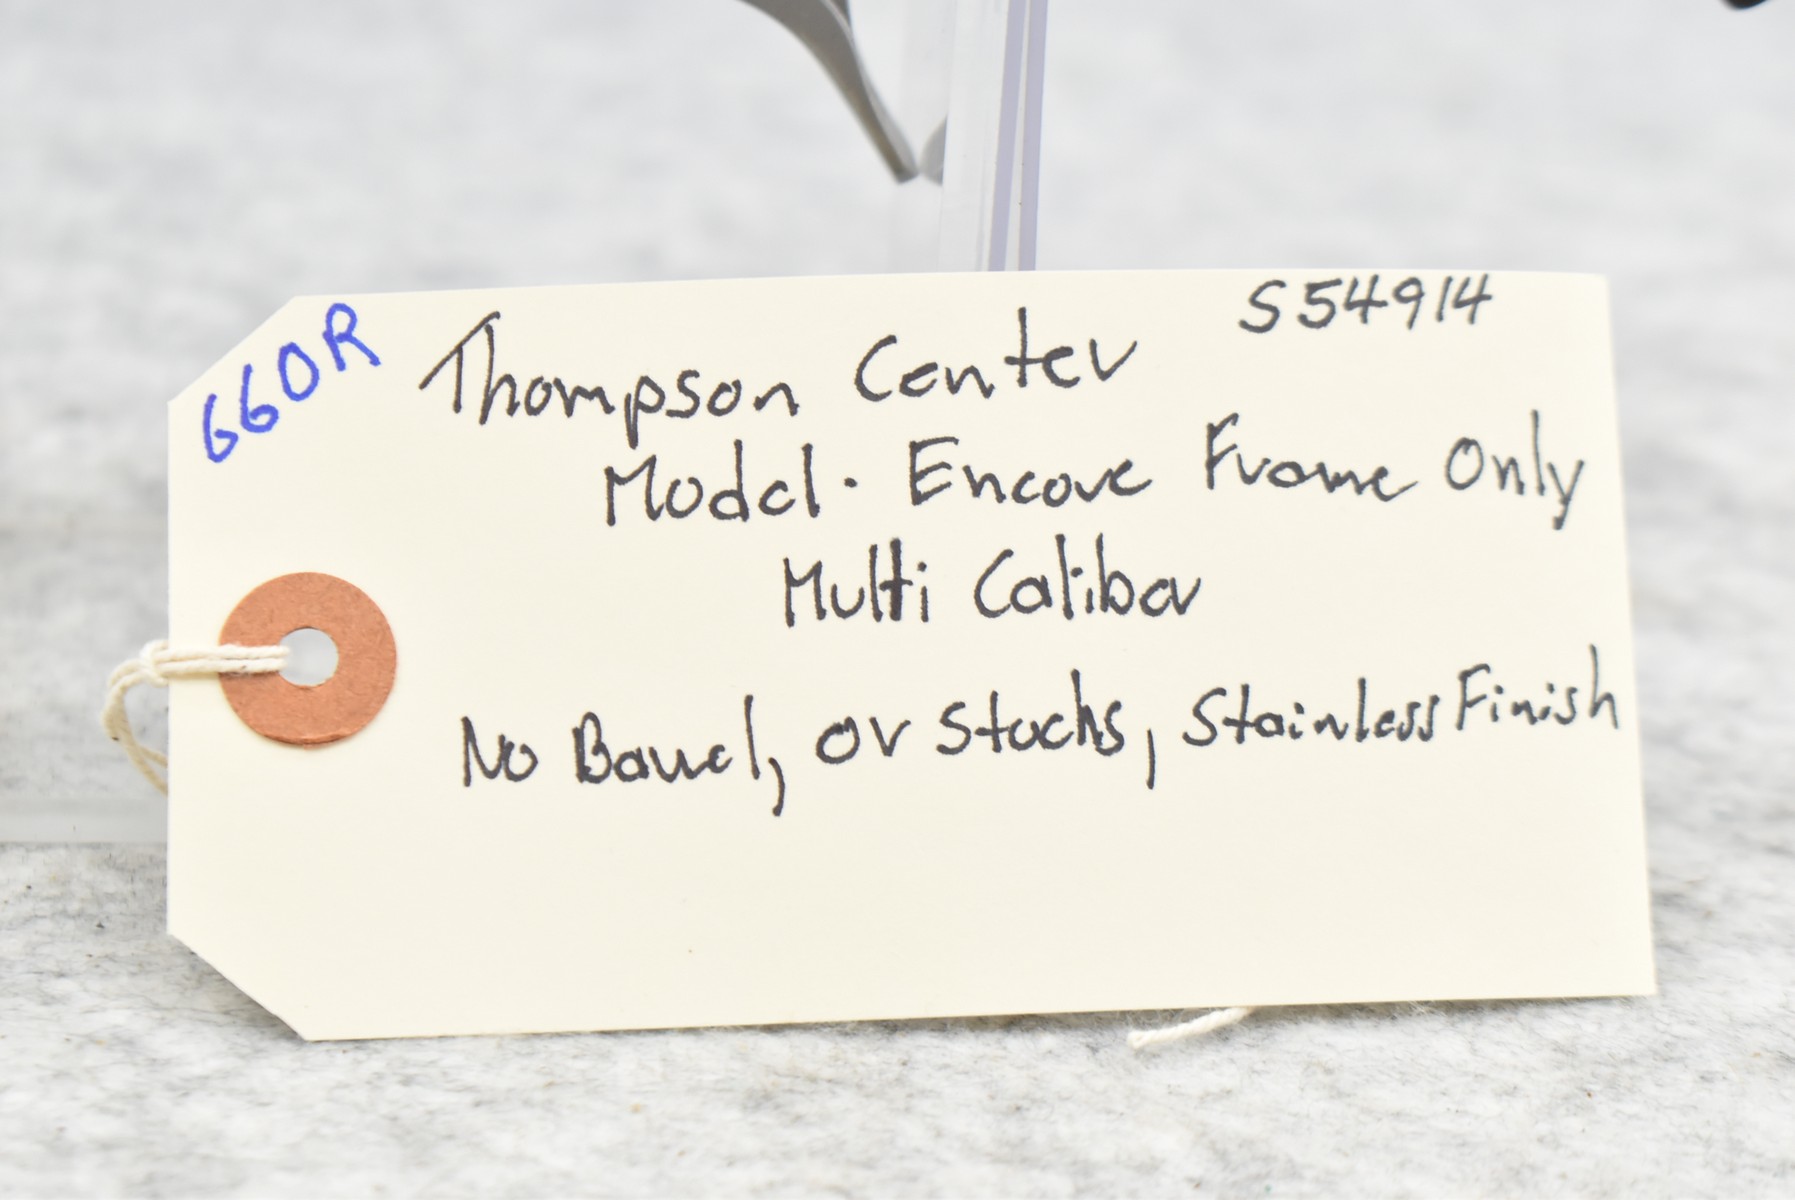 660R
S54914
Thompson Center
Model. Encore Frame Only
Multi Caliber
No Barrel, or Stocks, Stainless Finish